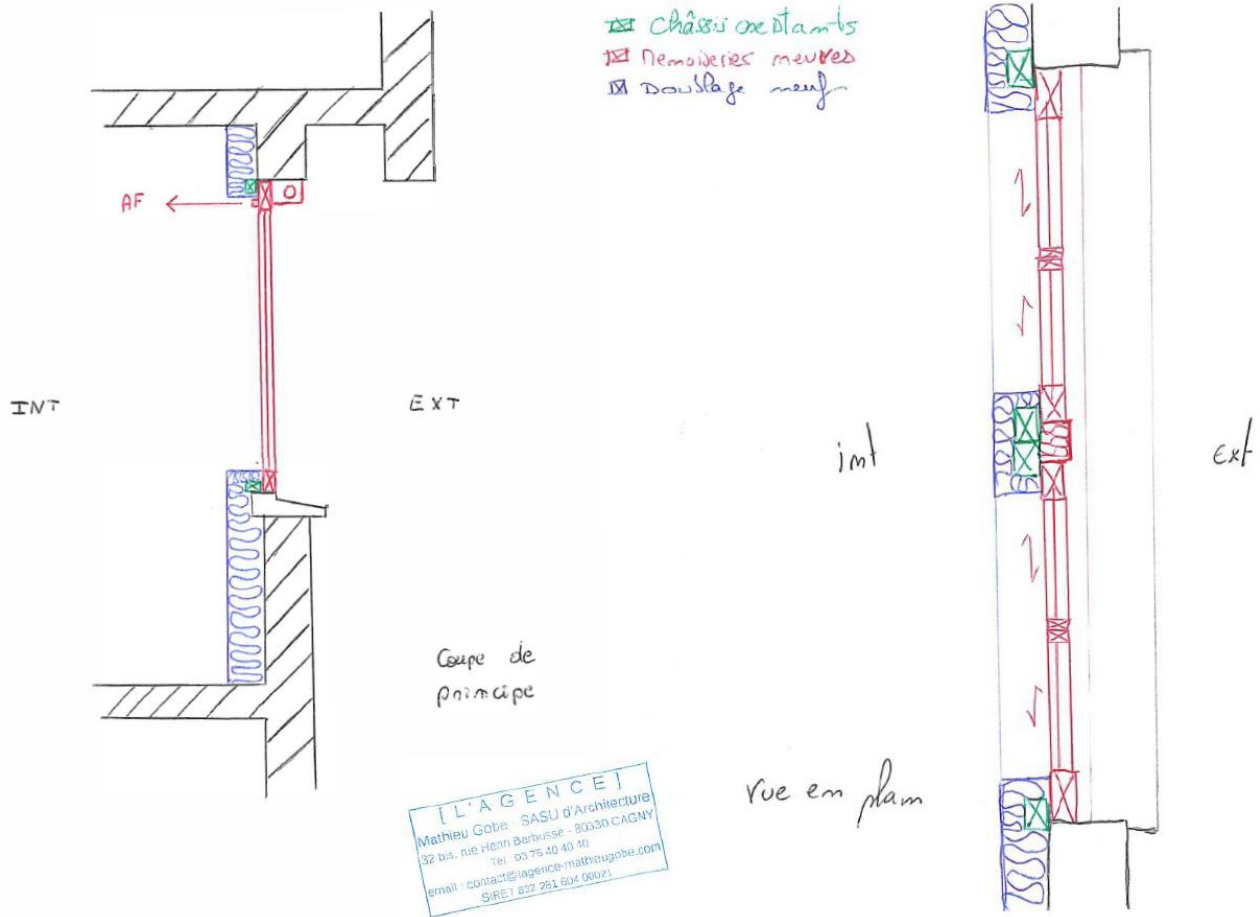 Châssis existants
Menuiseries neuves
Doublage neuf
AF
INT
EXT
int
Ext
Coupe de
principe
vue en plan
[ L'AGENCE ]
Mathieu Gobe - SASU d'Architecture
32 bis, rue Henri Barbusse - 80330 CAGNY
Tel : 03 75 40 40 40
email : contact@lagence-mathieugobe.com
SIRET 832 281 604 00021